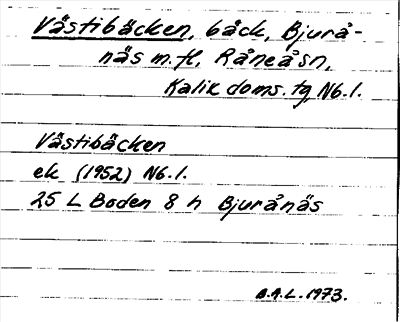 Västibäcken, bäck, Bjurå-
näs m.fl, Råneåsn,
Kalix doms. tg, Nb.l.
Västibäcken
ek (1952) Nb.l.
25 L Boden 8 h Bjurånäs
B.A.L. 1973.